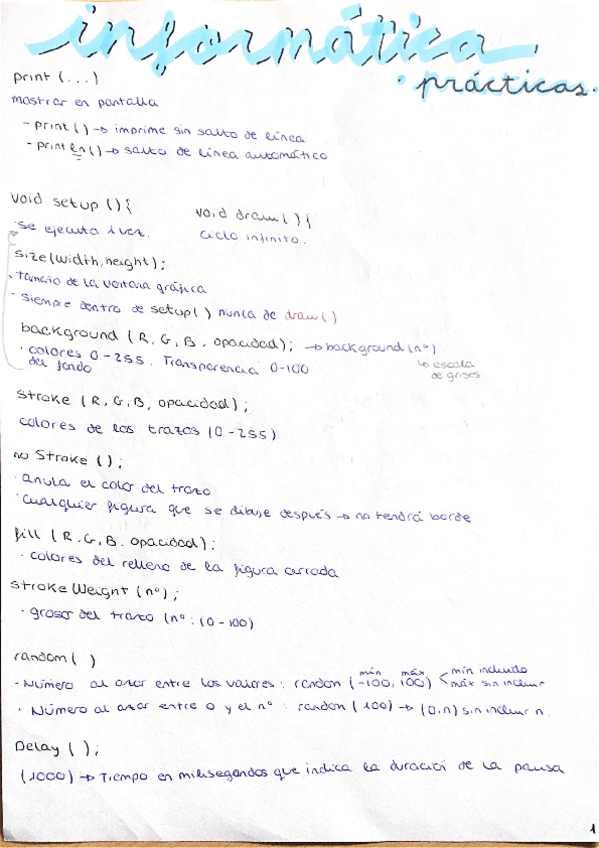 informática
· prácticas.
print (...)
mostrar en pantalla
- print () → imprime sin salto de línea
- println () → salto de línea automático
void setup () {
void draw () {
· Se ejecuta 1 vez.
ciclo infinito.
size (width, height);
· tamaño de la ventana gráfica
· siempre dentro de setup() nunca de draw()
background (R, G, B, opacidad); → background (nº)
· colores 0-255. Transparencia 0-100
del fondo
↳ escala
de grises
stroke (R, G, B, opacidad);
colores de los trazos (0-255)
no Stroke ();
· anula el color del trazo
· Cualquier figura que se dibuje después → no tendrá borde
fill (R, G, B, opacidad);
· colores del relleno de la figura cerrada
stroke Weight (nº);
· grosor del trazo (nº: (0-100)
random ( )
mín máx
mín incluido
· Número al azar entre los valores: random (-100, 100) <
máx sin incluir
· Número al azar entre 0 y el nº: random (100) → (0,n) sin incluir n.
Delay ( );
(1000) → Tiempo en milisegundos que indica la duración de la pausa
1